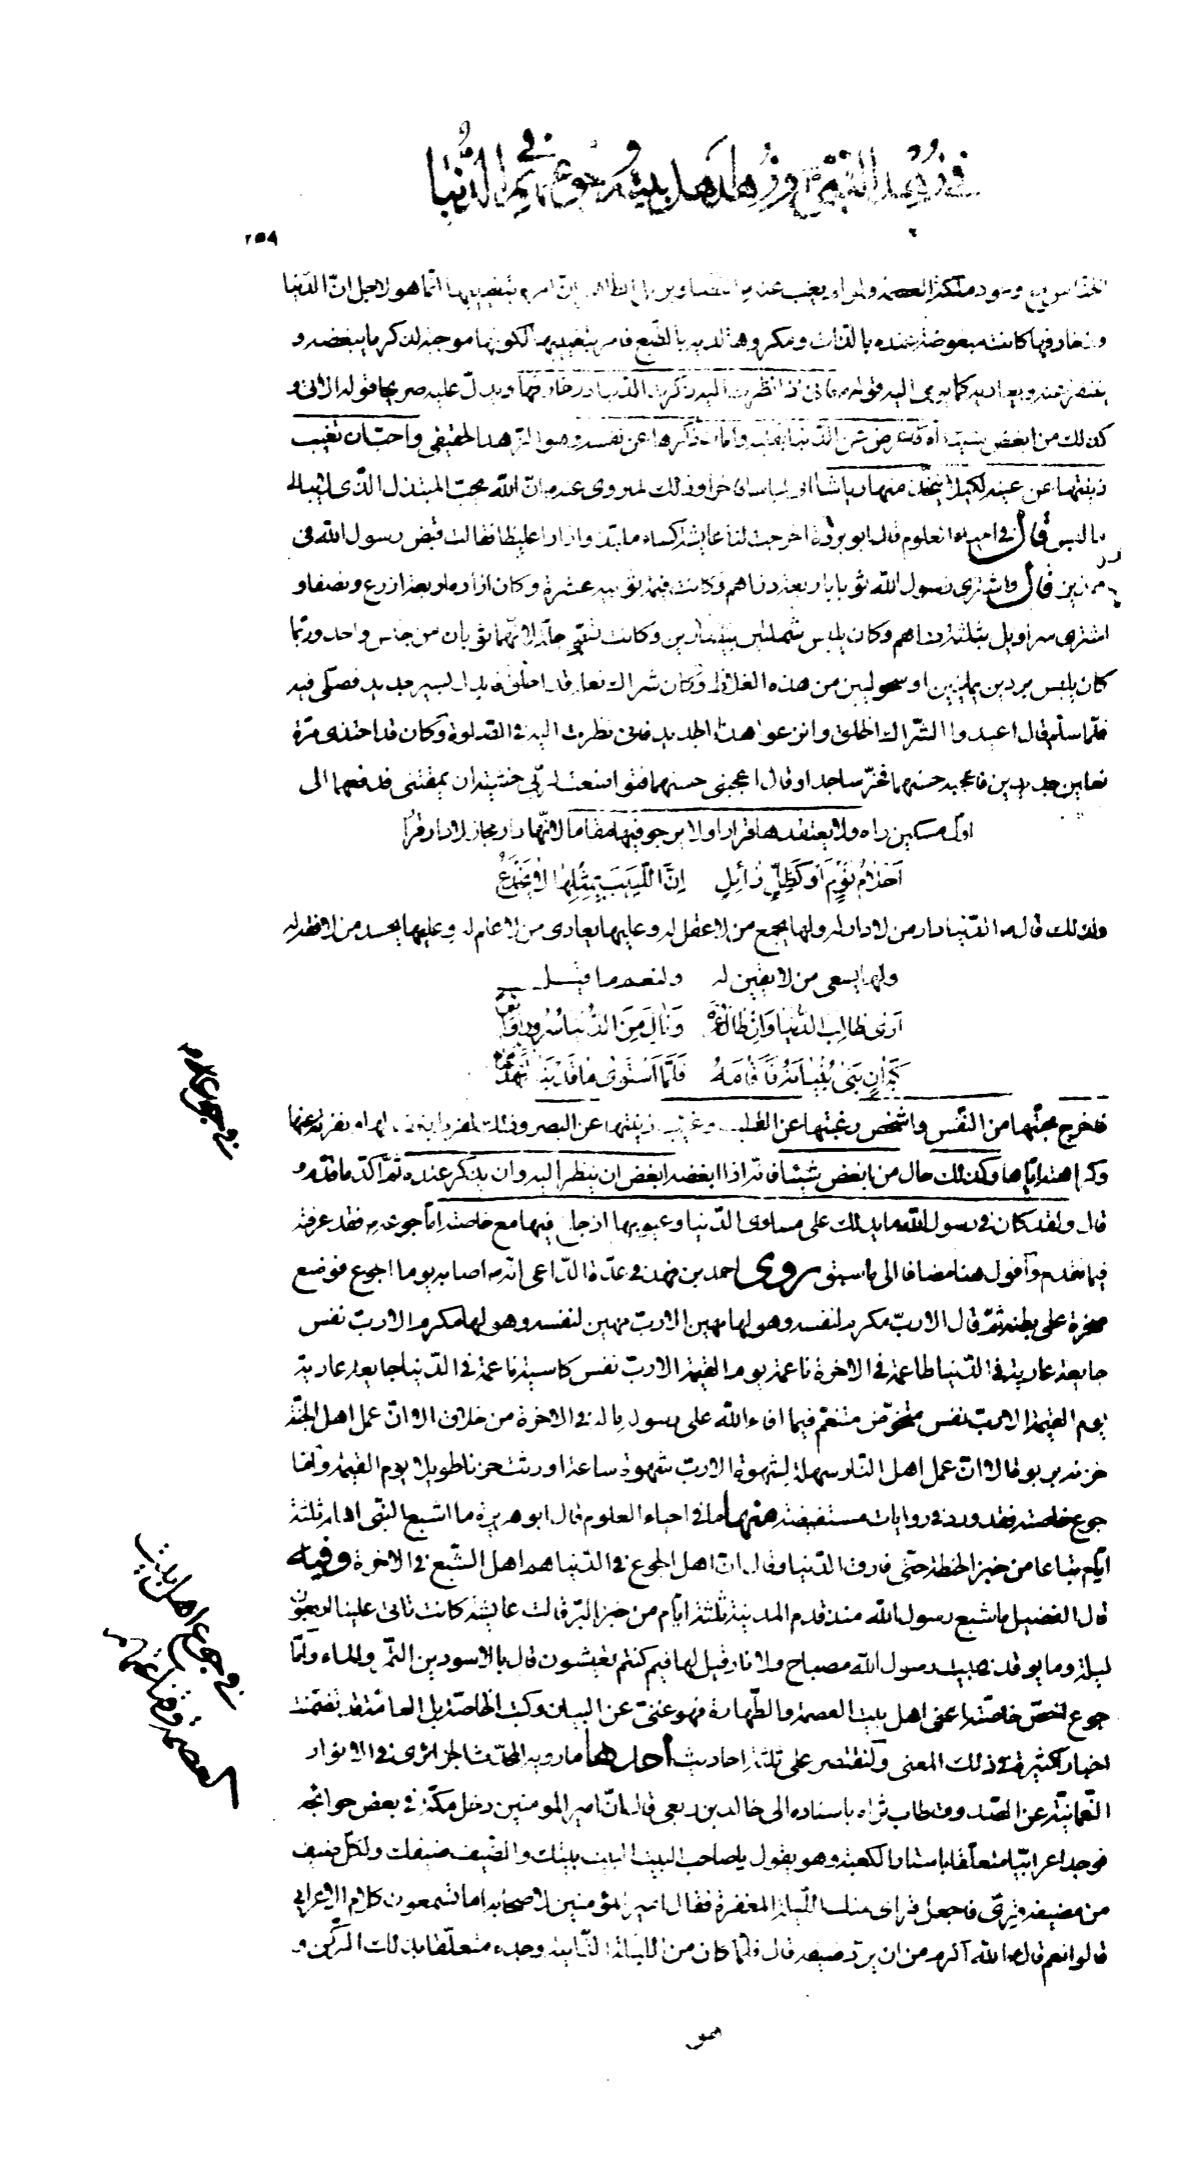 في زهد النبي وزهد اهل بيته وجوعهم في الدنيا
٢٥٨
وجود ملكة العصمة انما هو لاجل ان الدنيا
وزخارفها كانت مبغوضة عنده بالذات ومكروهة لديه بالطبع فامر بتغييبها لكونها موجبة لذكر ما يبغضه و
يتنفر عنه ويعاديه كما يومى اليه قوله فانى اذا نظرت اليه ذكرت الدنيا وزخارفها ويدل عليه صريحا قوله الاتى و
كذلك من ابغض شيئا اه فاعرض عن الدنيا بقلبه وامات ذكرها عن نفسه وهو الزهد الحقيقى واحب ان تغيب
زينتها عن عينه لكيلا يتخذ منها رياشا اى لباسا فاخرا وذلك لما روى عنه ان الله يحب المبتذل الذى لا يبالى
ما لبس قال فى احياء العلوم قال ابو بردة اخرجت لنا عايشة كساء ملبدا وازارا غليظا فقالت قبض رسول الله فى
هذين قال واشترى رسول الله ثوبا باربعة دراهم وكانت قيمة ثوبيه عشرة وكان ازاره اربعة اذرع ونصفا و
اشترى سراويل بثلثة دراهم وكان يلبس شملتين بيضاوين وكانت تسمى حلة لانهما ثوبان من جنس واحد وربما
كان يلبس بردين يمانيين او سحوليين من هذه الغلاظ وكان شراك نعله قد اخلق فابدل بسير جديد فصلى فيه
فلما سلم قال اعيدوا الشراك الخلق وانزعوا هذا الجديد فانى نظرت اليه فى الصلوة وكان قد احتذى مرة
نعلين جديدين فاعجبه حسنهما فخر ساجدا وقال اعجبنى حسنهما فتواضعت لربى خشية ان يمقتنى فدفعهما الى
اول مسكين راه ولا يعتقدها قرارا ولا يرجو فيها مقاما لانها دار مجاز لا دار قرار
اَحْلامُ نَوْمٍ اَوْ كَظِلٍّ زائِلٍ اِنَّ اللَّبيبَ بِمِثْلِها لا يُخْدَعُ
ولذلك قال الدنيا دار من لا دار له ولها يجمع من لا عقل له وعليها يعادى من لا علم له وعليها يحسد من لا فقه له
ولها يسعى من لا يقين له ولنعم ما قيل
اَرى طالِبَ الدُّنيا وَاِنْ طالَ عُمْرُهُ وَنالَ مِنَ الدُّنيا سُرُورًا
كَبانٍ بَنى بُنْيانَهُ فَاَقامَهُ فَلَمّا اسْتَوى ما قَدْ بَناهُ تَهَدَّما
فاخرج محبتها من النفس واشخص رغبتها عن القلب وغيب زينتها عن البصر وذلك لفرط بغضه لها ونفرته عنها
وكراهته اياها وكذلك حال من ابغض شيئا فانه اذا ابغضه ابغض ان ينظر اليه وان يذكر عنده ثم اكد ما قدم و
قال ولقد كان فى رسول الله ما يدلك على مساوى الدنيا وعيوبها اذ جاع فيها مع خاصته اما جوعه فقد عرفته
فيما تقدم واقول هنا مضافا الى ما سبق روى احمد بن فهد فى عدة الداعى انه اصابه يوما الجوع فوضع
صخرة على بطنه ثم قال الا رب مكرم لنفسه وهو لها مهين الا رب مهين لنفسه وهو لها مكرم الا رب نفس
جايعة عارية فى الدنيا طاعمة فى الاخرة ناعمة يوم القيمة الا رب نفس كاسية ناعمة فى الدنيا جايعة عارية
يوم القيمة الا رب نفس متخوض متنعم فيما افاء الله على رسوله ما له فى الاخرة من خلاق الا ان عمل اهل الجنة
حزنة بربوة الا ان عمل اهل النار سهلة بشهوة الا رب شهوة ساعة اورثت حزنا طويلا يوم القيمة واما
جوع خاصته فقد ورد فى روايات مستفيضة منها ما فى احياء العلوم قال ابو هريرة ما اشبع النبى اهله ثلثة
ايام تباعا من خبز الحنطة حتى فارق الدنيا وقال ان اهل الجوع فى الدنيا هم اهل الشبع فى الاخرة وفيه
قال الفضيل ما شبع رسول الله منذ قدم المدينة ثلثة ايام من خبز البر قالت عايشة كانت تاتى علينا اربعون
ليلة وما يوقد فى بيت رسول الله مصباح ولا نار قيل لها فبم كنتم تعيشون قال بالاسودين التمر والماء واما
جوع اخص خاصته اعنى اهل بيت العصمة والطهارة فهو غنى عن البيان وكتب الخاصة بل العامة قد تضمنت
اخبارا كثيرة فى ذلك المعنى ولنقتصر على ثلثة احاديث احدها ما رويه المحدث الجزائرى فى الانوار
النعمانية عن الصدوق طاب ثراه باسناده الى خالد بن ربعى قال ان امير المومنين دخل مكة فى بعض حوائجه
فوجد اعرابيا متعلقا باستار الكعبة وهو يقول يا صاحب البيت البيت بيتك والضيف ضيفك ولكل ضيف
من مضيفه قرى فاجعل قراى منك الليلة المغفرة فقال امير المؤمنين لاصحابه اما تسمعون كلام الاعرابى
قالوا نعم قال الله اكرم من ان يرد ضيفه قال فلما كان من الليلة الثانية وجده متعلقا بذلك الركن و
فى جوعه
فى جوع اهل بيت
العصمة